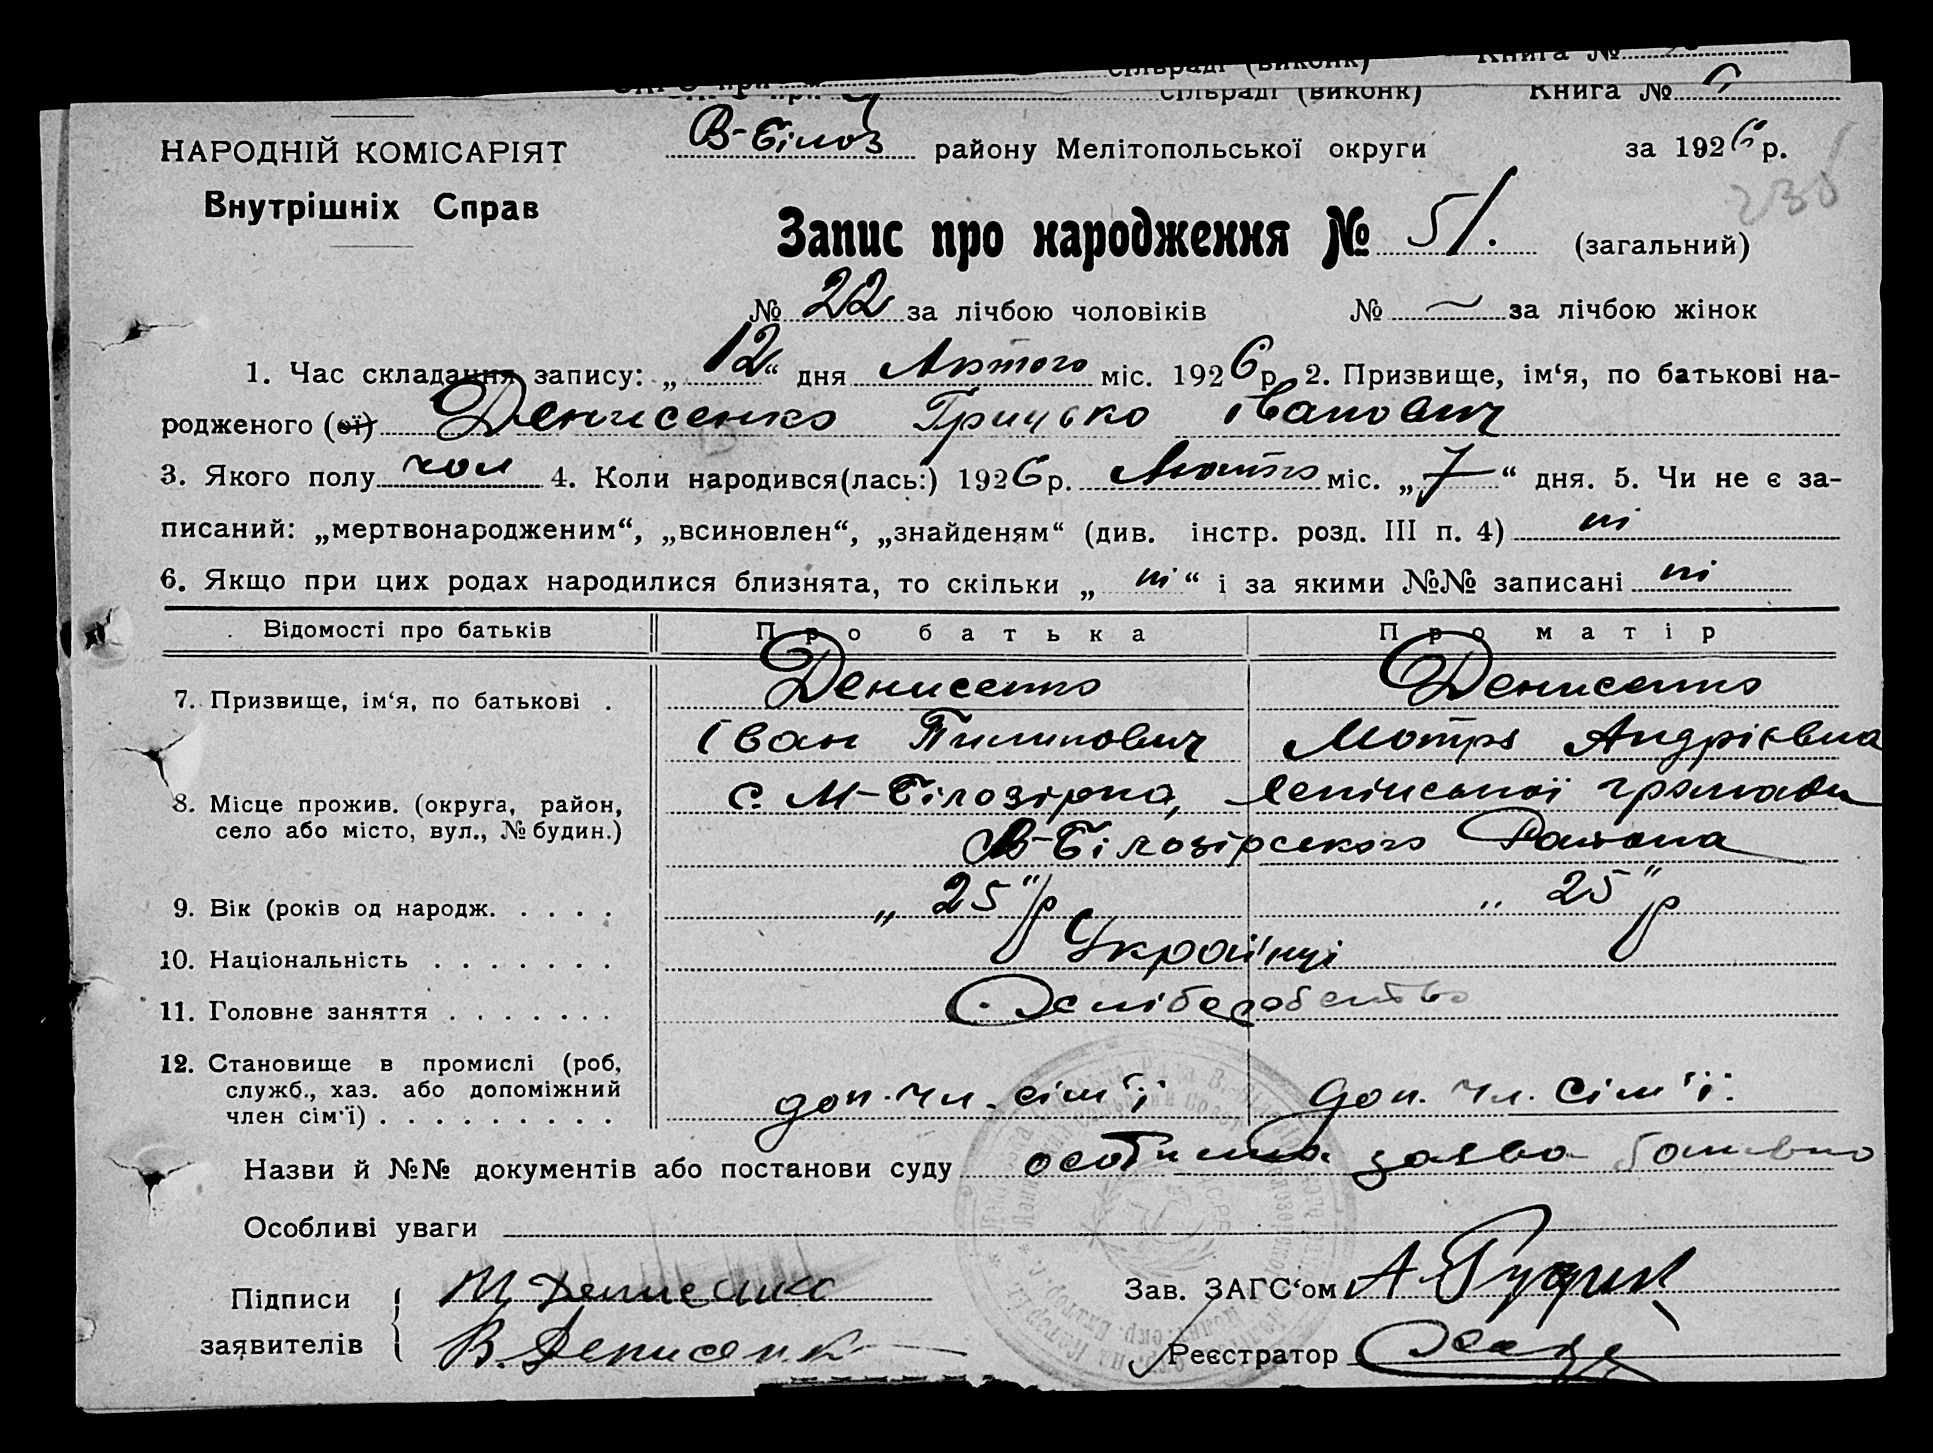 сільраді (виконк) Книга №
сільраді (виконк) Книга № 6
НАРОДНІЙ КОМІСАРІЯТ
Внутрішніх Справ
В-Білоз району Мелітопольської округи за 1926 р.
236
Запис про народження № 51. (загальний)
№ 22 за лічбою чоловіків № — за лічбою жінок
1. Час складання запису: „12“ дня Лютого міс. 1926 р. 2. Призвище, ім‘я, по батькові на-
родженого (ої) Денисенко Грицько Іванович
3. Якого полу чол 4. Коли народився(лась:) 1926 р. Лютого міс. „7“ дня. 5. Чи не є за-
писаний: „мертвонародженим“, „всиновлен“, „знайденям“ (див. інстр. розд. III п. 4) ні
6. Якщо при цих родах народилися близнята, то скільки „ні“ і за якими №№ записані ні
Відомості про батьків Про батька Про матір
7. Призвище, ім‘я, по батькові . Денисенко Денисенко
Іван Пилипович Мотря Андріївна
8. Місце прожив. (округа, район, село або місто, вул., № будин.) с. М-Білозірка, Ленінської громади
В-Білозірського Района
9. Вік (років од народж. . . . . „25“ р „25“ р
10. Національність . . . . . . . Українці
11. Головне заняття . . . . . . . Хліборобство
12. Становище в промислі (роб, служб., хаз. або допоміжний член сім‘ї) . . . . . . . . . доп. чл. сім'ї доп. чл. сім'ї.
Назви й №№ документів або постанови суду особиста заява батька
Особливі уваги
Підписи заявителів М Денисенко
В. Денисенко
Зав. ЗАГС‘ом А.
Реєстратор